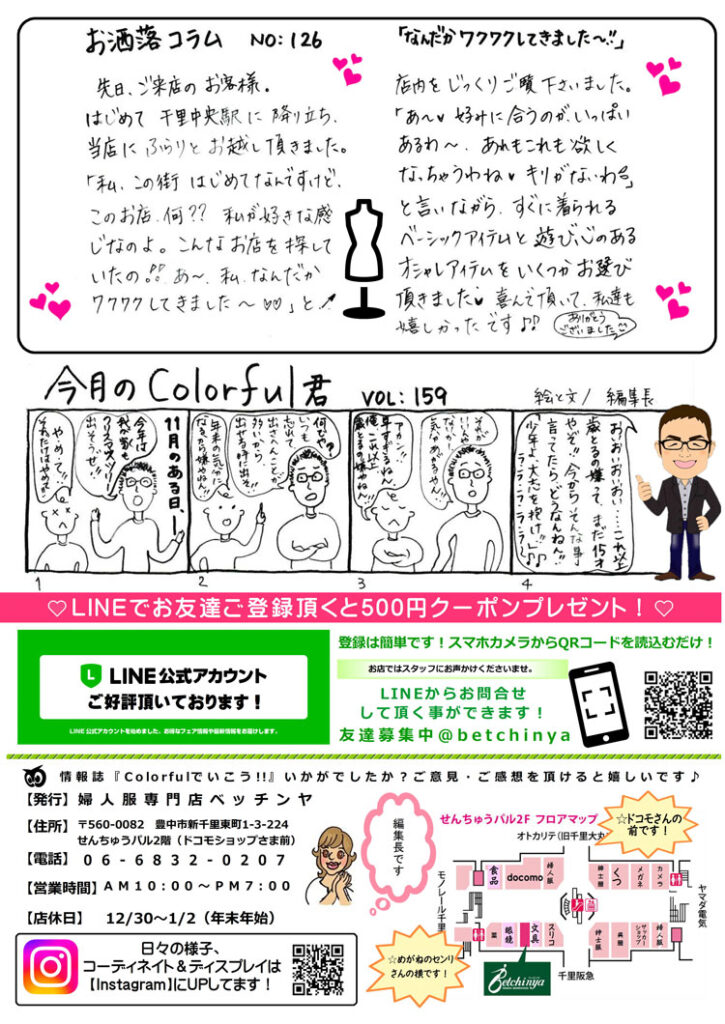 お洒落コラム NO:126
先日、ご来店のお客様。
はじめて 千里中央駅に降り立ち、
当店にふらりとお越し頂きました。
「私、この街 はじめてなんですけど、
このお店、何?? 私が好きな感
じなのよ。こんなお店を探して
いたの!! あ〜、私、なんだか
ワクワクしてきました〜♡♡」と
「なんだかワクワクしてきました〜!!」
店内をじっくりご覧下さいました。
「あ〜♥ 好みに合うのが、いっぱい
あるわ〜、あれもこれも欲しく
なっちゃうわね♥ キリがないわ」
と言いながら、すぐに着られる
ベーシックアイテムと遊び心のある
オシャレアイテムをいくつかお選び
頂きました♥ 喜んで頂いて、私達も
嬉しかったです♪♪
ありがとう
ございました
今月のColorful君 VOL:159 絵と文/編集長
11月のある日、
今年は
我が家も
クリスマスツリー
出そうぜ!!
やめて!!
それだけはやめて!!
1
何でや?
いつも
忘れて
出さんことが
多いから、
出せる時に出そ!!
年末の気分に
なるから嫌やねん!!
2
アカン!!
年末が来るねん!!
俺、これ以上
歳とるの嫌やねん!!
3
おいおいおいおい…これ以上
歳とるの嫌って、まだ15才
やぞ!! 今からそんな事
言ってたら、どうなんねん!!
少年よ、大志を抱け!!
ラ・ラ・ラ・ラ・ラ〜♪♪
4
♡LINEでお友達ご登録頂くと500円クーポンプレゼント!♡
LINE公式アカウント
ご好評頂いております!
LINE公式アカウントを始めました。お得なフェア情報や最新情報をお届けします。
登録は簡単です!スマホカメラからQRコードを読込むだけ!
お店ではスタッフにお声かけくださいませ。
LINEからお問合せ
して頂く事ができます!
友達募集中@betchinya
情報誌『Colorfulでいこう!!』いかがでしたか?ご意見・ご感想を頂けると嬉しいです♪
【発行】婦人服専門店ベッチンヤ
【住所】〒560-0082 豊中市新千里東町1-3-224
せんちゅうパル2階(ドコモショップさま前)
【電話】06-6832-0207
【営業時間】AM10:00〜PM7:00
【店休日】12/30〜1/2(年末年始)
日々の様子、
コーディネイト&ディスプレイは
【Instagram】にUPしてます!
編集長です
せんちゅうパル2F フロアマップ
オトカリテ(旧千里大丸
☆ドコモさんの
前です!
モノレール千里
食品
docomo
婦人服
紳士服
くつ
メガネ
カメラ
ヤマダ電気
薬
眼鏡
文具
スリコ
紳士服
呉服
サッカーショップ
婦人服
☆めがねのセンリ
さんの横です!
Betchinya
千里阪急